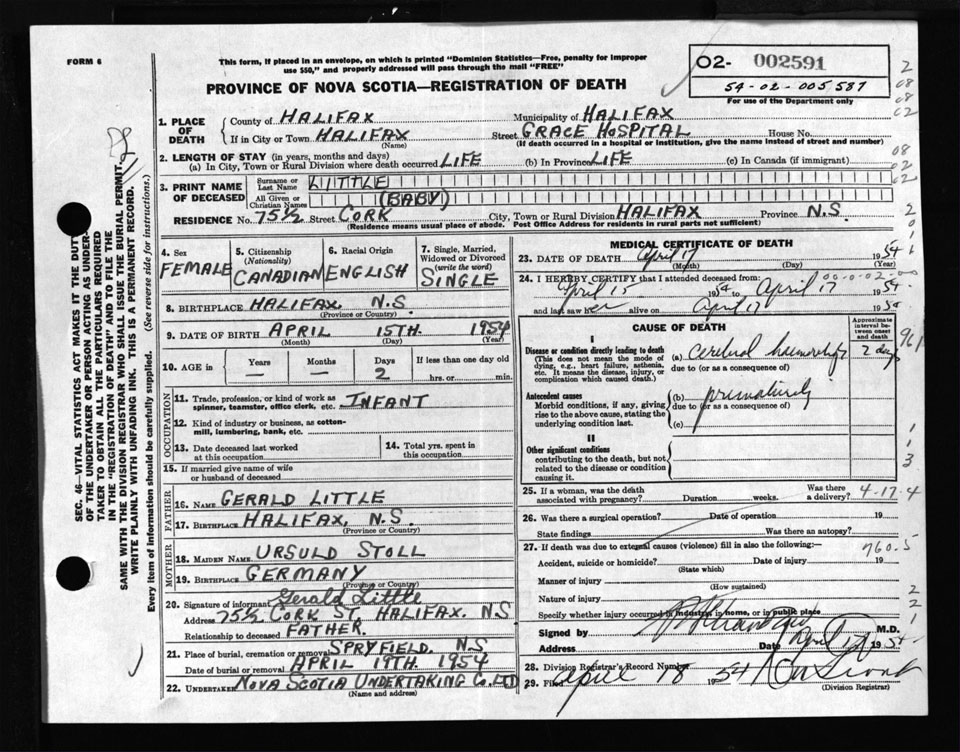 FORM 6
This form, if placed in an envelope, on which is printed "Dominion Statistics—Free, penalty for improper
use $50," and properly addressed will pass through the mail "FREE"
PROVINCE OF NOVA SCOTIA—REGISTRATION OF DEATH
O2- 002591
54-02-005587
For use of the Department only
1. PLACE OF DEATH
County of HALIFAX Municipality of HALIFAX
If in City or Town HALIFAX Street GRACE HOSPITAL House No.
(Name) (If death occurred in a hospital or institution, give the name instead of street and number)
2. LENGTH OF STAY (in years, months and days)
(a) In City, Town or Rural Division where death occurred LIFE (b) In Province LIFE (c) In Canada (if immigrant)
3. PRINT NAME OF DECEASED
Surname or Last Name LITTLE
All Given or Christian Names (BABY)
RESIDENCE No. 75½ Street CORK City, Town or Rural Division HALIFAX Province N.S.
(Residence means usual place of abode. Post Office Address for residents in rural parts not sufficient)
4. Sex
FEMALE
5. Citizenship (Nationality)
CANADIAN
6. Racial Origin
ENGLISH
7. Single, Married, Widowed or Divorced (write the word)
SINGLE
8. BIRTHPLACE HALIFAX, N.S
(Province or Country)
9. DATE OF BIRTH APRIL 15TH. 1954
(Month) (Day) (Year)
10. AGE in Years — Months — Days 2 If less than one day old
hrs. or min.
OCCUPATION
11. Trade, profession, or kind of work as spinner, teamster, office clerk, etc. INFANT
12. Kind of industry or business, as cotton-mill, lumbering, bank, etc.
13. Date deceased last worked at this occupation
14. Total yrs. spent in this occupation
15. If married give name of wife or husband of deceased
FATHER
16. NAME GERALD LITTLE
17. BIRTHPLACE HALIFAX, N.S.
(Province or Country)
MOTHER
18. MAIDEN NAME URSULD STOLL
19. BIRTHPLACE GERMANY
(Province or Country)
20. Signature of informant Gerald Little
Address 75½ CORK ST. HALIFAX. N.S
Relationship to deceased FATHER.
21. Place of burial, cremation or removal SPRYFIELD. N.S
Date of burial or removal APRIL 19TH. 1954
22. UNDERTAKER NOVA SCOTIA UNDERTAKING CO. LTD
(Name and address)
MEDICAL CERTIFICATE OF DEATH
23. DATE OF DEATH April 17 1954
(Month) (Day) (Year)
24. I HEREBY CERTIFY that I attended deceased from:
April 15 1954 to April 17 1954
and last saw her alive on April 17 1954
CAUSE OF DEATH
Approximate interval between onset and death
I
Disease or condition directly leading to death
(This does not mean the mode of dying, e.g., heart failure, asthenia, etc. It means the disease, injury, or complication which caused death.)
(a) cerebral haemorrhage 2 days
due to (or as a consequence of)
Antecedent causes
Morbid conditions, if any, giving rise to the above cause, stating the underlying condition last.
(b) prematurity
due to (or as a consequence of)
(c)
II
Other significant conditions
contributing to the death, but not related to the disease or condition causing it.
25. If a woman, was the death associated with pregnancy? Duration weeks. Was there a delivery? 4-17-4
26. Was there a surgical operation? Date of operation 19
State findings Was there an autopsy?
27. If death was due to external causes (violence) fill in also the following:— 760.5
Accident, suicide or homicide? Date of injury 19
(State which)
Manner of injury
(How sustained)
Nature of injury
Specify whether injury occurred in industry, in home, or in public place
Signed by M.D.
Address Date April 17 1954
28. Division Registrar's Record Number
29. Filed April 18 1954
(Division Registrar)
SEC. 46—VITAL STATISTICS ACT MAKES IT THE DUTY
OF THE UNDERTAKER OR PERSON ACTING AS UNDER-
TAKER TO OBTAIN ALL THE PARTICULARS REQUIRED
IN THE "REGISTRATION OF DEATH" AND TO FILE THE
SAME WITH THE DIVISION REGISTRAR WHO SHALL ISSUE THE BURIAL PERMIT.
WRITE PLAINLY WITH UNFADING INK. THIS IS A PERMANENT RECORD.
Every item of information should be carefully supplied. (See reverse side for instructions.)